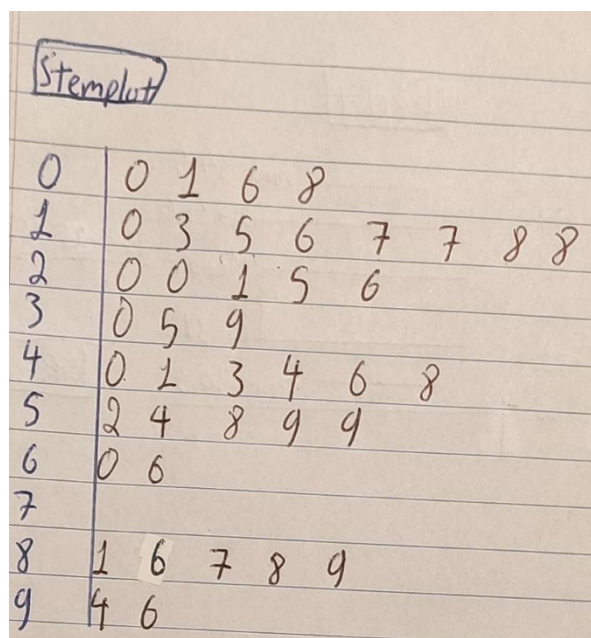 Stemplot
0 | 0 1 6 8
1 | 0 3 5 6 7 7 8 8
2 | 0 0 1 5 6
3 | 0 5 9
4 | 0 1 3 4 6 8
5 | 2 4 8 9 9
6 | 0 6
7 |
8 | 1 6 7 8 9
9 | 4 6